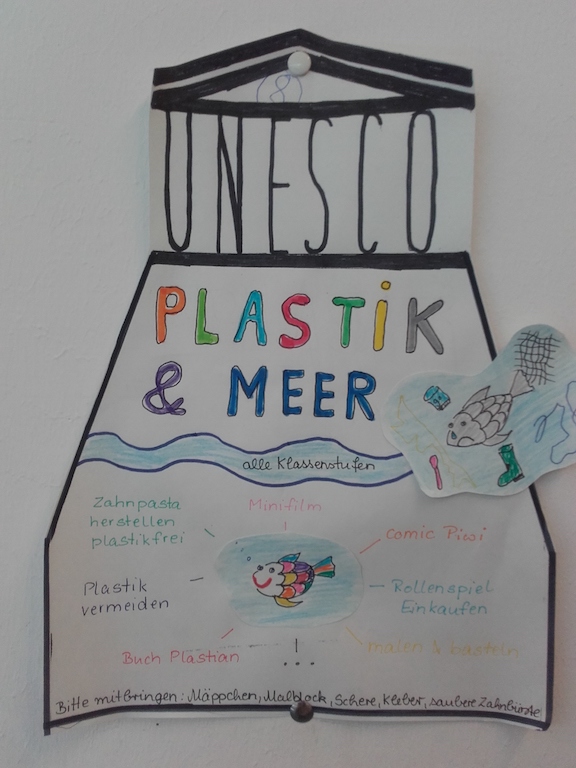 8
UNESCO
PLASTiK
& MEER
alle Klassenstufen
Zahnpasta
herstellen
plastikfrei
Minifilm
comic Piwi
Plastik
vermeiden
Rollenspiel
Einkaufen
Buch Plastian
malen & basteln
...
Bitte mitbringen: Mäppchen, Malblock, Schere, Kleber, saubere Zahnbürste